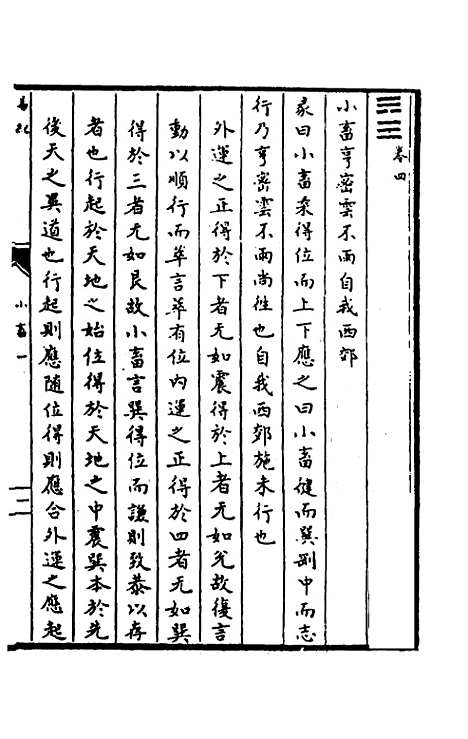 ䷈ 卷四
小畜亨密雲不雨自我西郊
彖曰小畜柔得位而上下應之曰小畜健而巽剛中而志
行乃亨密雲不雨尚徃也自我西郊施未行也
外運之正得於下者无如震得於上者无如兊故復言
動以順行而萃言萃有位内運之正得於四者无如巽
得於三者无如艮故小畜言巽得位而謙則致恭以存
者也行起於天地之始位得於天地之中震巽本於先
後天之巽道也行起則應随位得則應合外運之應起
小畜一